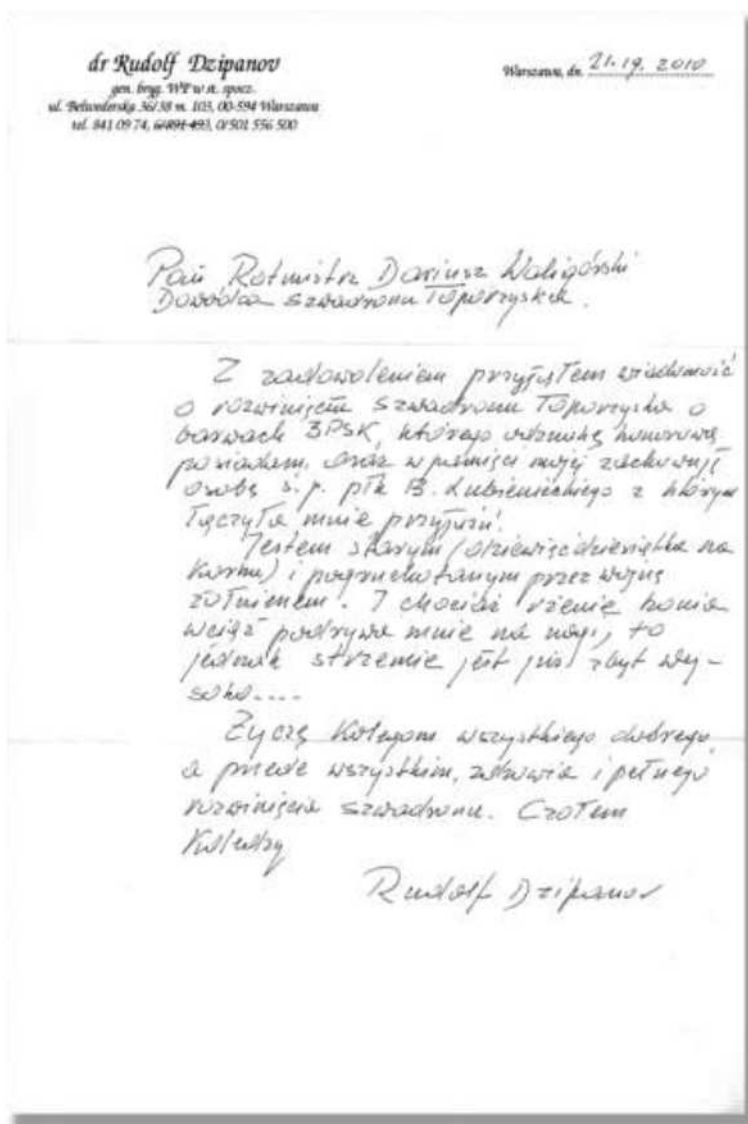 dr Rudolf Dzipanov
gen. bryg. WP w st. spocz.
ul. Belwederska 36/38 m. 103, 00-594 Warszawa
tel. 841 09 74, 6/891 493, 0/501 556 500
Warszawa, dn. 21.19. 2010
Pan Rotmistrz Dariusz Waligórski
Dowódca Szwadronu Toporzysko.
Z zadowoleniem przyjąłem wiadomość
o rozwinięciu Szwadronu Toporzysko o
barwach 3PSK, którego odznakę honorową
posiadam, oraz w pamięci mojej zachowuję
osobę ś.p. płk B. Lubienieckiego z którym
łączyła mnie przyjaźń.
Jestem starym (dziewięćdziesiątka na
karku) i pogruchotanym przez wojnę
żołnierzem. I chociaż rżenie konia
wciąż podrywa mnie na nogi, to
jednak strzemię jest już zbyt wy-
soko....
Życzę Kolegom wszystkiego dobrego,
a przede wszystkim, zdrowia i pełnego
rozwinięcia szwadronu. Czołem
Koledzy
Rudolf Dzipanov